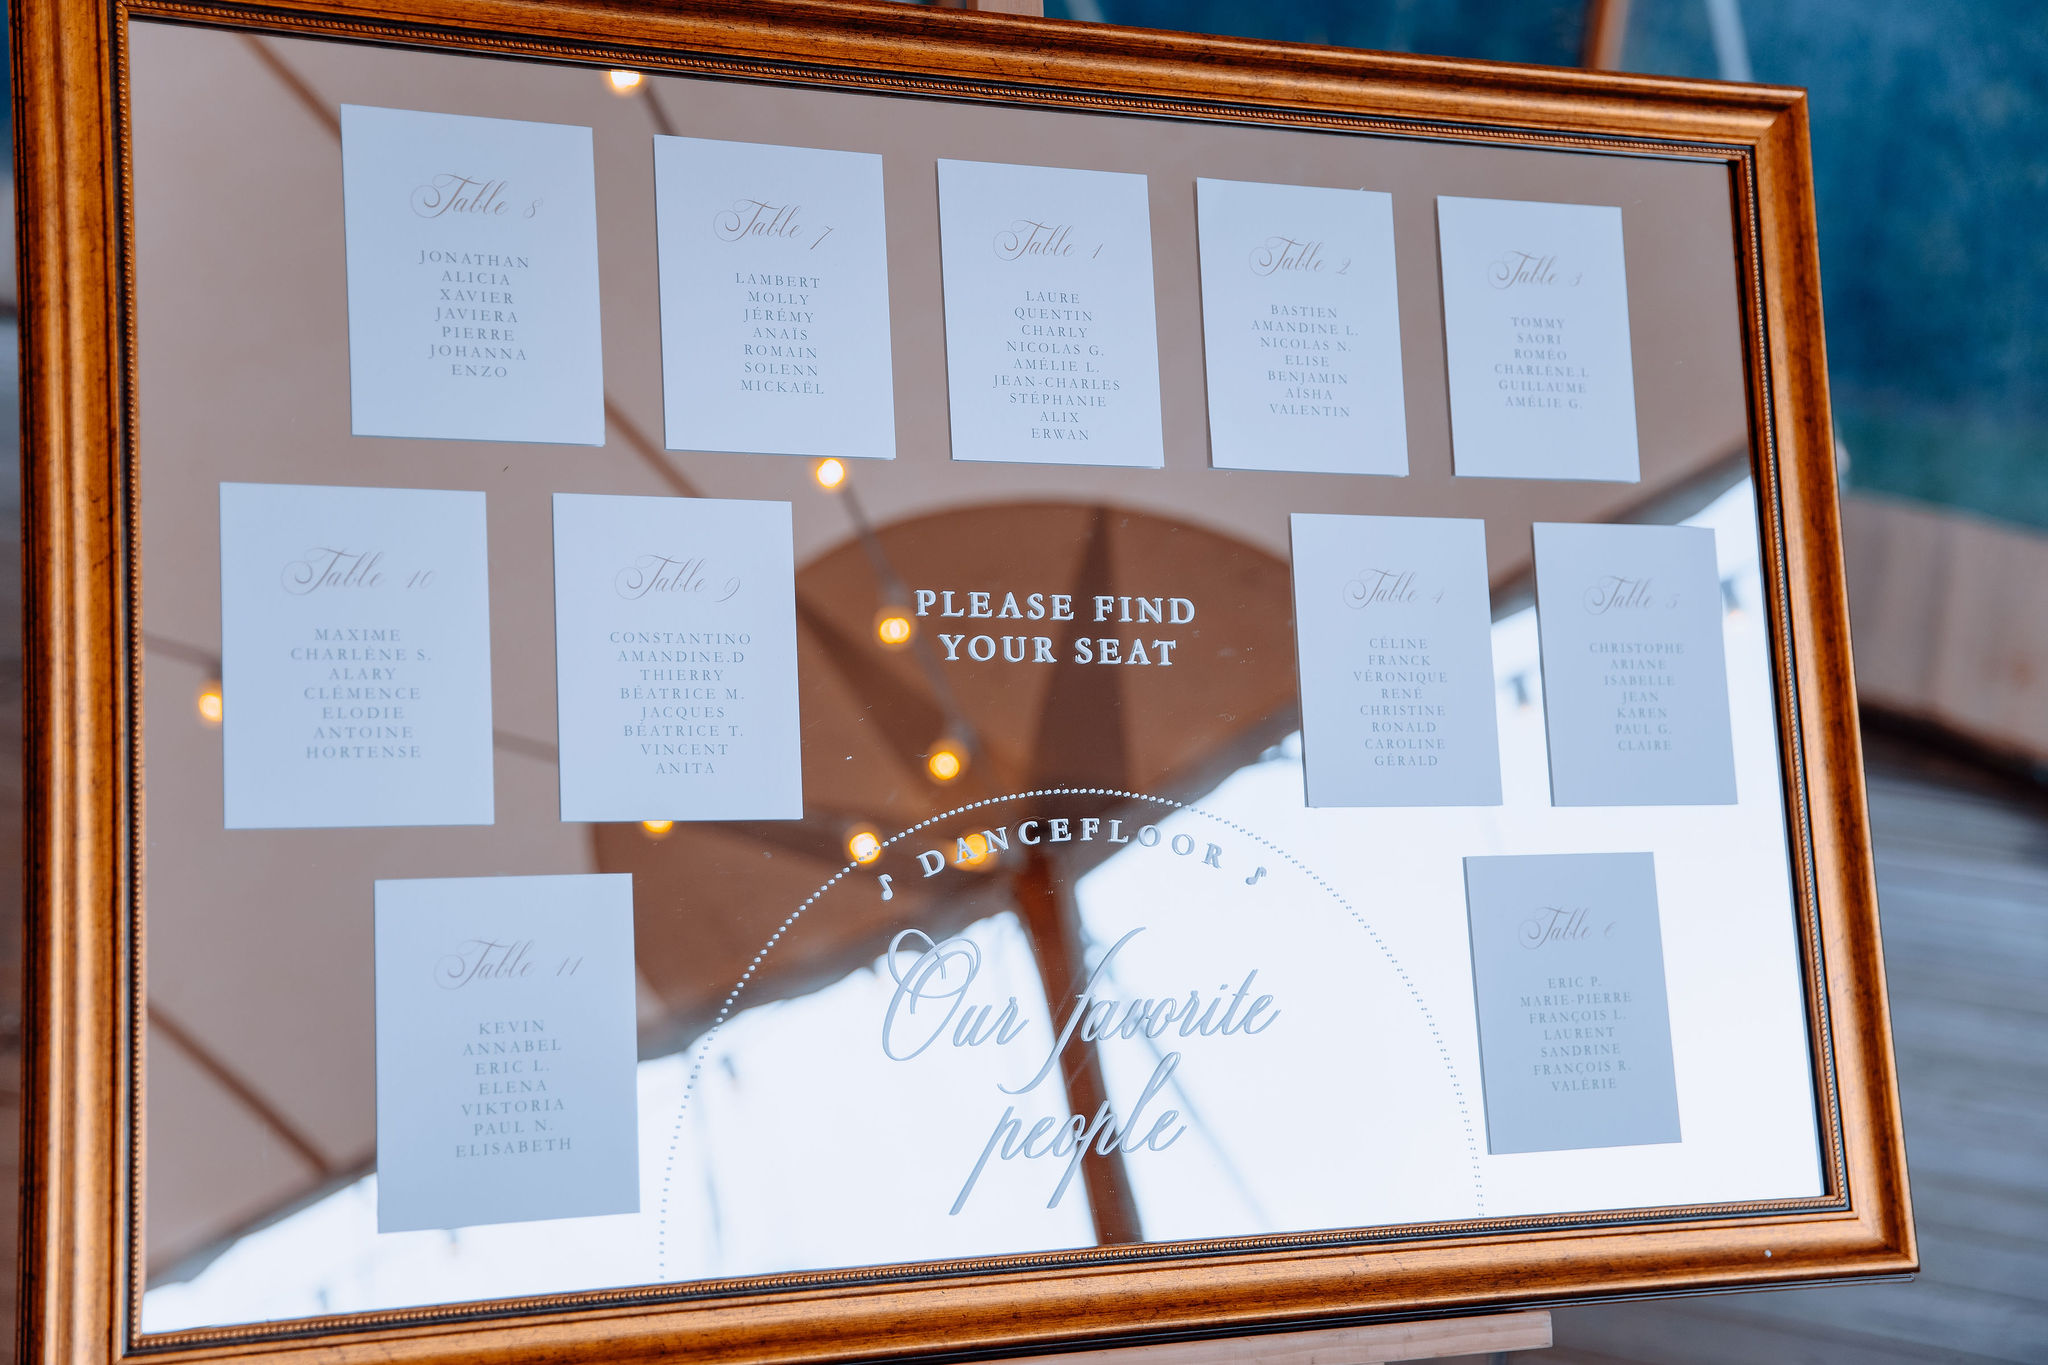 Table 8
JONATHAN
ALICIA
XAVIER
JAVIERA
PIERRE
JOHANNA
ENZO
Table 7
LAMBERT
MOLLY
JÉRÉMY
ANAÏS
ROMAIN
SOLENN
MICKAËL
Table 1
LAURE
QUENTIN
CHARLY
NICOLAS G.
AMÉLIE L.
JEAN-CHARLES
STÉPHANIE
ALIX
ERWAN
Table 2
BASTIEN
AMANDINE L.
NICOLAS N.
ELISE
BENJAMIN
AÏSHA
VALENTIN
Table 3
TOMMY
SAORI
ROMÉO
CHARLÈNE.L
GUILLAUME
AMÉLIE G.
Table 10
MAXIME
CHARLÈNE S.
ALARY
CLÉMENCE
ELODIE
ANTOINE
HORTENSE
Table 9
CONSTANTINO
AMANDINE.D
THIERRY
BÉATRICE M.
JACQUES
BÉATRICE T.
VINCENT
ANITA
PLEASE FIND
YOUR SEAT
Table 4
CÉLINE
FRANCK
VÉRONIQUE
RENÉ
CHRISTINE
RONALD
CAROLINE
GÉRALD
Table 5
CHRISTOPHE
ARIANE
ISABELLE
JEAN
KAREN
PAUL G.
CLAIRE
Table 11
KEVIN
ANNABEL
ERIC L.
ELENA
VIKTORIA
PAUL N.
ELISABETH
♪ DANCEFLOOR ♪
Our favorite
people
Table 6
ERIC P.
MARIE-PIERRE
FRANÇOIS L.
LAURENT
SANDRINE
FRANÇOIS R.
VALÉRIE